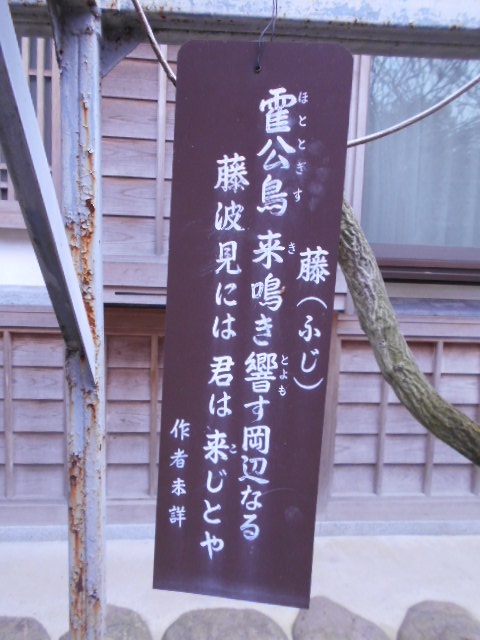 藤(ふじ)
霍公鳥 来鳴き響す岡辺なる
ほととぎす き とよも
藤波見には 君は来じとや
こ
作者未詳